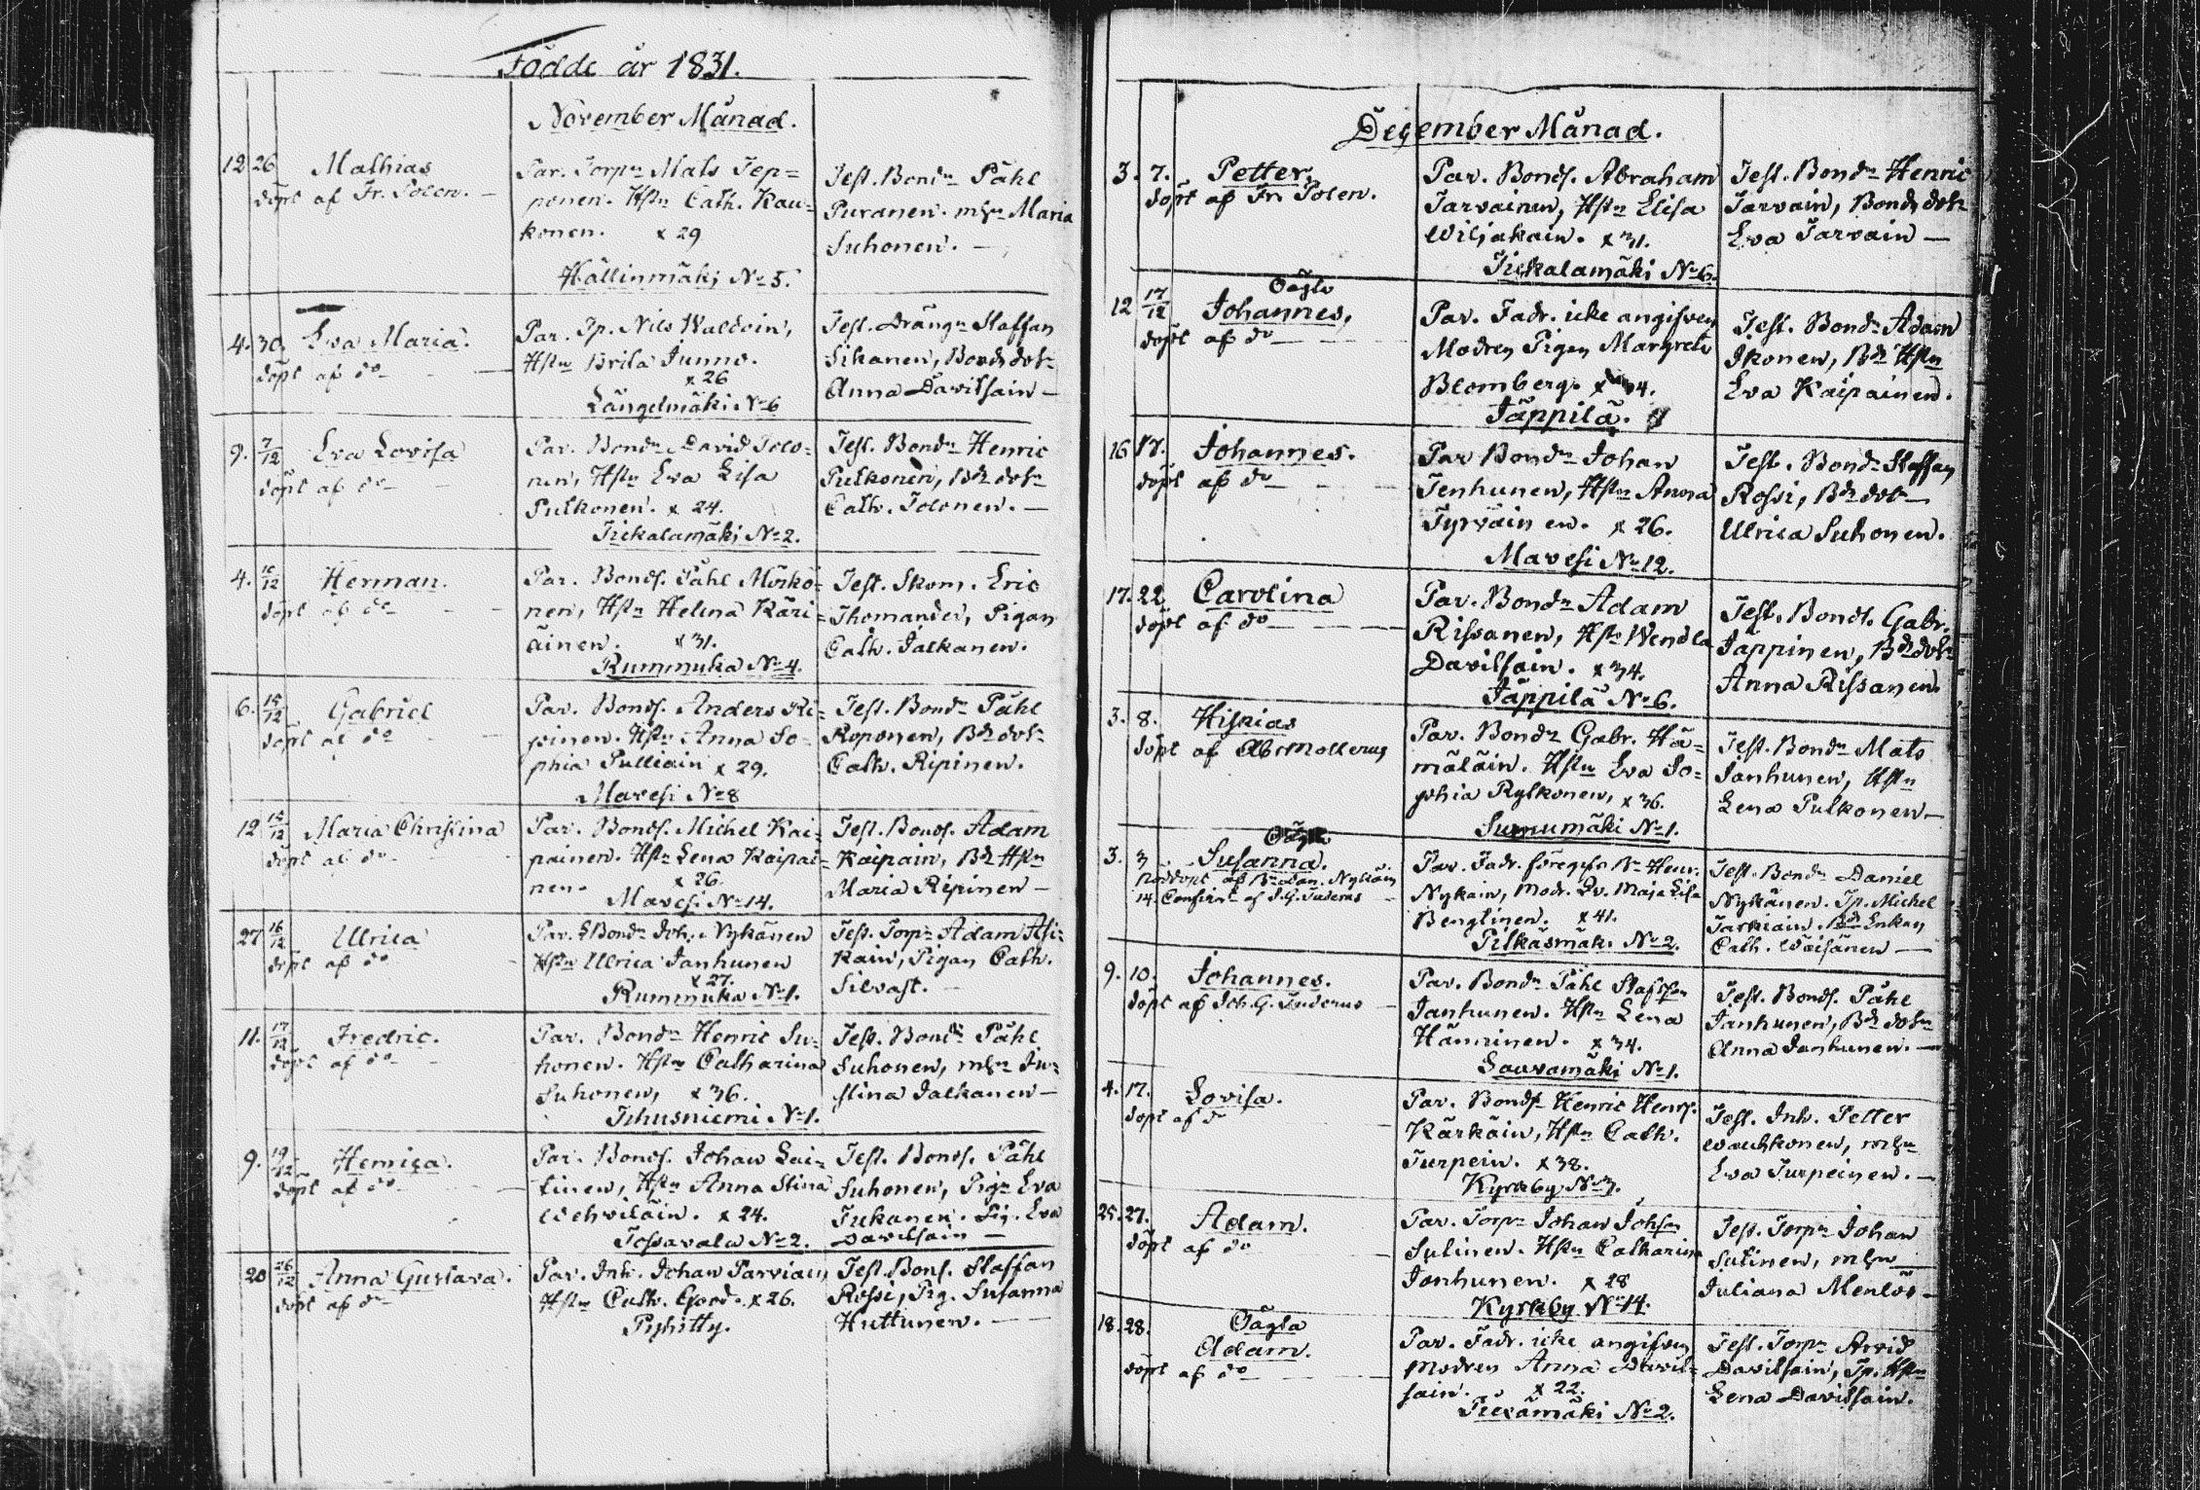 Födde år 1831.
November Månad.
12 26 Mathias
döpt af Fr. Polon.
Par. Torpn Mats Tep=
ponen. Hstn Cath. Kau=
konen. x 29
Hällinmäki No 5.
Test. Bondn Påhl
Puranen. mhn Maria
Suhonen.
4. 30. Eva Maria.
döpt af do
Par. Tp. Nils Waldoin,
Hstn Brita Junno.
x 26
Längelmäki No 6
Test. Drängn Staffan
Sikanen, Bonds dotr
Anna Davidsain
9. 7/12 Eva Lovisa
döpt af do
Par. Bondn David Tolo=
nen, Hstn Eva Lisa
Pulkonen. x 24.
Tirkalamäki No 2.
Test. Bondn Henric
Pulkonen, Bdr dotr
Cath. Tolonen.
4. 10/12 Herman.
döpt af do
Par. Bonds. Påhl Mörkö=
nen, Hstn Helena Käri=
äinen. x 31.
Rummuka No 4.
Test. Skom. Eric
Thomander, Pigan
Cath. Jalkanen.
6. 15/12 Gabriel
döpt af do
Par. Bonds. Anders Ri=
pinen. Hstn Anna So=
phia Pulliain x 29.
Mavesi No 8
Test. Bondn Påhl
Roponen, Bdr dotr
Cath. Ripinen.
12 15/12 Maria Christina
döpt af do
Par. Bonds. Michel Kai=
painen. Hstn Lena Kaipai=
nen. x 26.
Mavesi No 14.
Test. Bonds. Adam
Kaipain, Bdr Hstn
Maria Ripinen
27 16/12 Ulrica
döpt af do
Par. Bondn Joh. Nykänen
Hstn Ulrica Janhunen
x 27.
Rummuka No 1.
Test. Torpn Adam Asi=
kain, Pigan Cath.
Silvast.
11. 17/12 Fredric.
döpt af do
Par. Bondn Henric Su=
honen. Hstn Catharina
Suhonen, x 36.
Ihusniemi No 1.
Test. Bondn Påhl
Suhonen, mhn Ju=
stina Jalkanen
9. 19/12
döpt af do
Par. Bonds. Johan Lai=
tinen, Hstn Anna Stina
Wehviläin. x 24.
Tossavala No 2.
Test. Bonds. Påhl
Suhonen, Pign Eva
Tukanen. Pig. Eva
Davidsain
20 26/12 Anna Gustava.
döpt af do
Par. Inh. Johan Parviain
Hstn Cath. Good. x 26.
Pyhitty.
Test. Bons. Staffan
Rossi, Pig. Susanna
Huttunen.
December Månad.
3. 7. Petter.
döpt af Fr. Polen.
Par. Bonds. Abraham
Tarvainen, Hstn Elisa
Wiljakain. x 31.
Tirkalamäki No 6.
Test. Bondn Henric
Tarvain, Bonds dotr
Eva Tarvain
12 17/12 Oägta
Johannes,
döpt af do
Par. Fadr. icke angifven
Modren Pigen Margreta
Blomberg. x 34.
Jäppilä.
Test. Bondn Adam
Ikonen, Bdr Hstn
Eva Kaipainen.
16 17. Johannes.
döpt af do
Par Bondn Johan
Tenhunen, Hstn Anna
Tyrväinen. x 26.
Mavesi No 12.
Test. Bondn Staffan
Rossi, Bdr dotr
Ulrica Suhonen.
17. 22 Carolina
döpt af do
Par. Bondn Adam
Rissanen, Hstn Wendla
Davidsain. x 34.
Jäppilä No 6.
Test. Bonds. Gabr.
Jäppinen, Bdr dotr
Anna Rissanen.
3. 8. Hiskias
döpt af Ab. Mollerus
Par. Bondn Gabr. Hä=
mäläin. Hstn Eva So=
phia Rylkonen, x 36.
Surnumäki No 1.
Test. Bondn Mats
Janhunen, Hstn
Lena Pulkonen
3. 3 Oägta
Susanna.
Nöddöpt af Nykäin
14. Confirt af J. G. Tuderus
Par. Fadr. föregifs Bn Henr.
Nykäin, Modr. Qv. Maja Lisa
Bengtinen. x 41.
Pilkäsmäki No 2.
Test. Bondn Daniel
Nykänen. Tp. Michel
Tarkiain. Bdr Enkan
Cath. Wäisänen
9. 10. Johannes.
döpt af Joh. G. Tuderus
Par. Bondn Påhl Stafson
Janhunen. Hstn Lena
Hänninen. x 34.
Sauvamäki No 1.
Test. Bonds. Påhl
Janhunen, Bdr dotr
Anna Janhunen.
4. 17. Lovisa.
döpt af do
Par. Bonds Henric Henrs.
Kärkäin, Hstn Cath.
Turpein. x 38.
Kyrkby No 3.
Test. Inh. Petter
Wauhkonen, mhn
Eva Turpeinen.
25. 27. Adam.
döpt af do
Par. Torpn Johan Johson
Sutinen. Hstn Catharina
Janhunen. x 28
Kyrkby No 14.
Test. Torpn Johan
Sutinen, mhn
Juliana Menlös
18. 28. Oägta
Adam.
döpt af do
Par. Fadr. icke angifven
Modren Anna David=
sain. x 22.
Pievämäki No 2.
Test. Torpn Arvid
Davidsain, Tp. Hstn
Lena Davidsain.